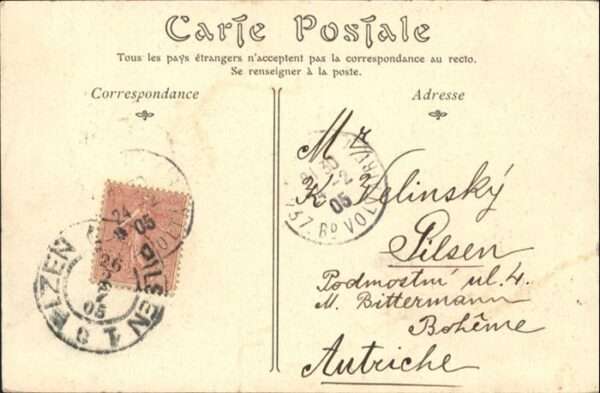 Carte Postale
Tous les pays étrangers n'acceptent pas la correspondance au recto.
Se renseigner à la poste.
Correspondance
Adresse
Mr
K Velinský
Pilsen
Podmostní ul. 4.
M. Bittermann
Bohême
Autriche
PLZEN 1 PILSEN
05
05
05